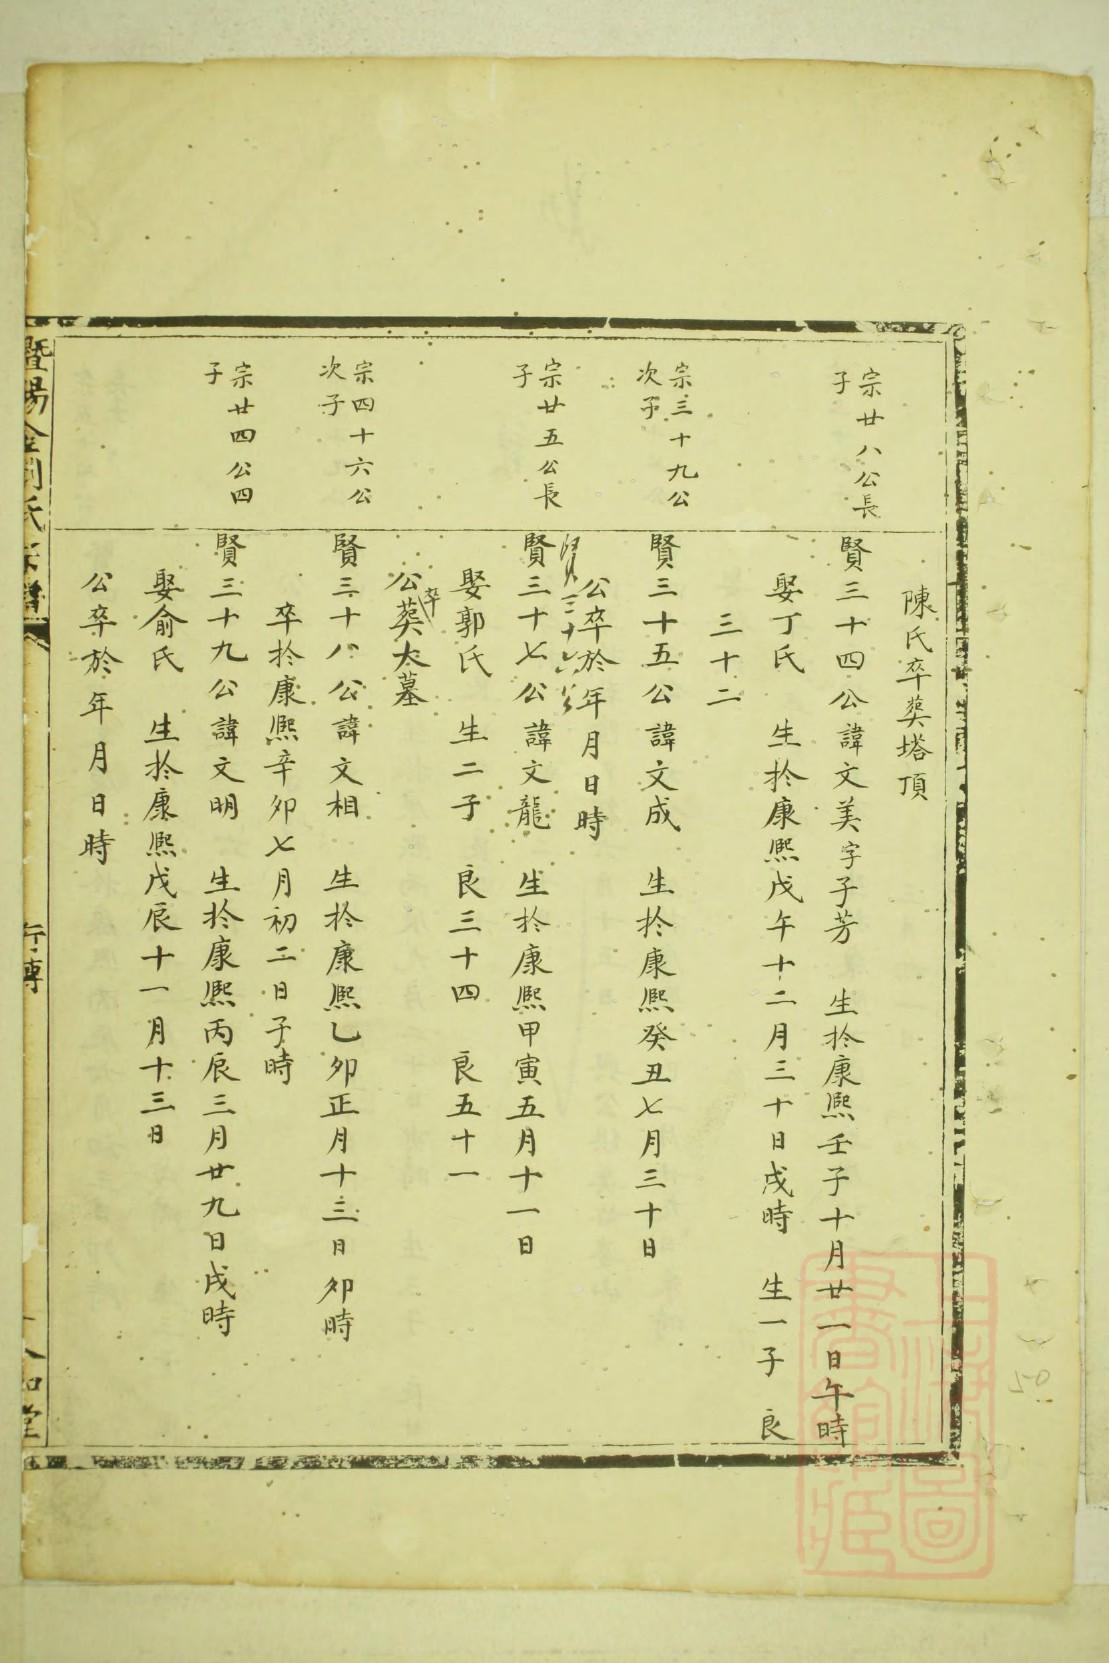 陳氏卒葬塔頂
宗廿八公長
子
賢三十四公諱文美字子芳　生扵康熙壬子十月廿一日午時
娶丁氏　生扵康熙戊午十二月三十日戌時　生一子　良
三十二
宗三十九公
次子
賢三十五公諱文成　生扵康熙癸丑七月三十日
公卒於年月日時
賢三十六公
宗廿五公長
子
賢三十七公諱文龍　生扵康熙甲寅五月十一日
娶郭氏　生二子　良三十四　良五十一
公卒葬大墓
宗四十六公
次子
賢三十八公諱文相　生扵康熙乙卯正月十三日卯時
卒扵康熙辛卯七月初二日子時
宗廿四公四
子
賢三十九公諱文明　生扵康熙丙辰三月廿九日戌時
娶俞氏　生扵康熙戊辰十一月十三日
公卒於年月日時
暨陽
氏宗譜
行傳
上海圖
書館藏
50